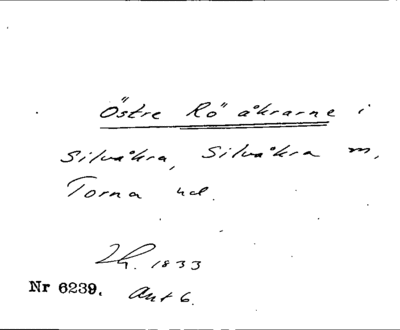 Östre Rö åkrarne i
Silvåkra, Silvåkra m,
Torna hd.
Lh. 1833
Nr 6239. Akt 6.